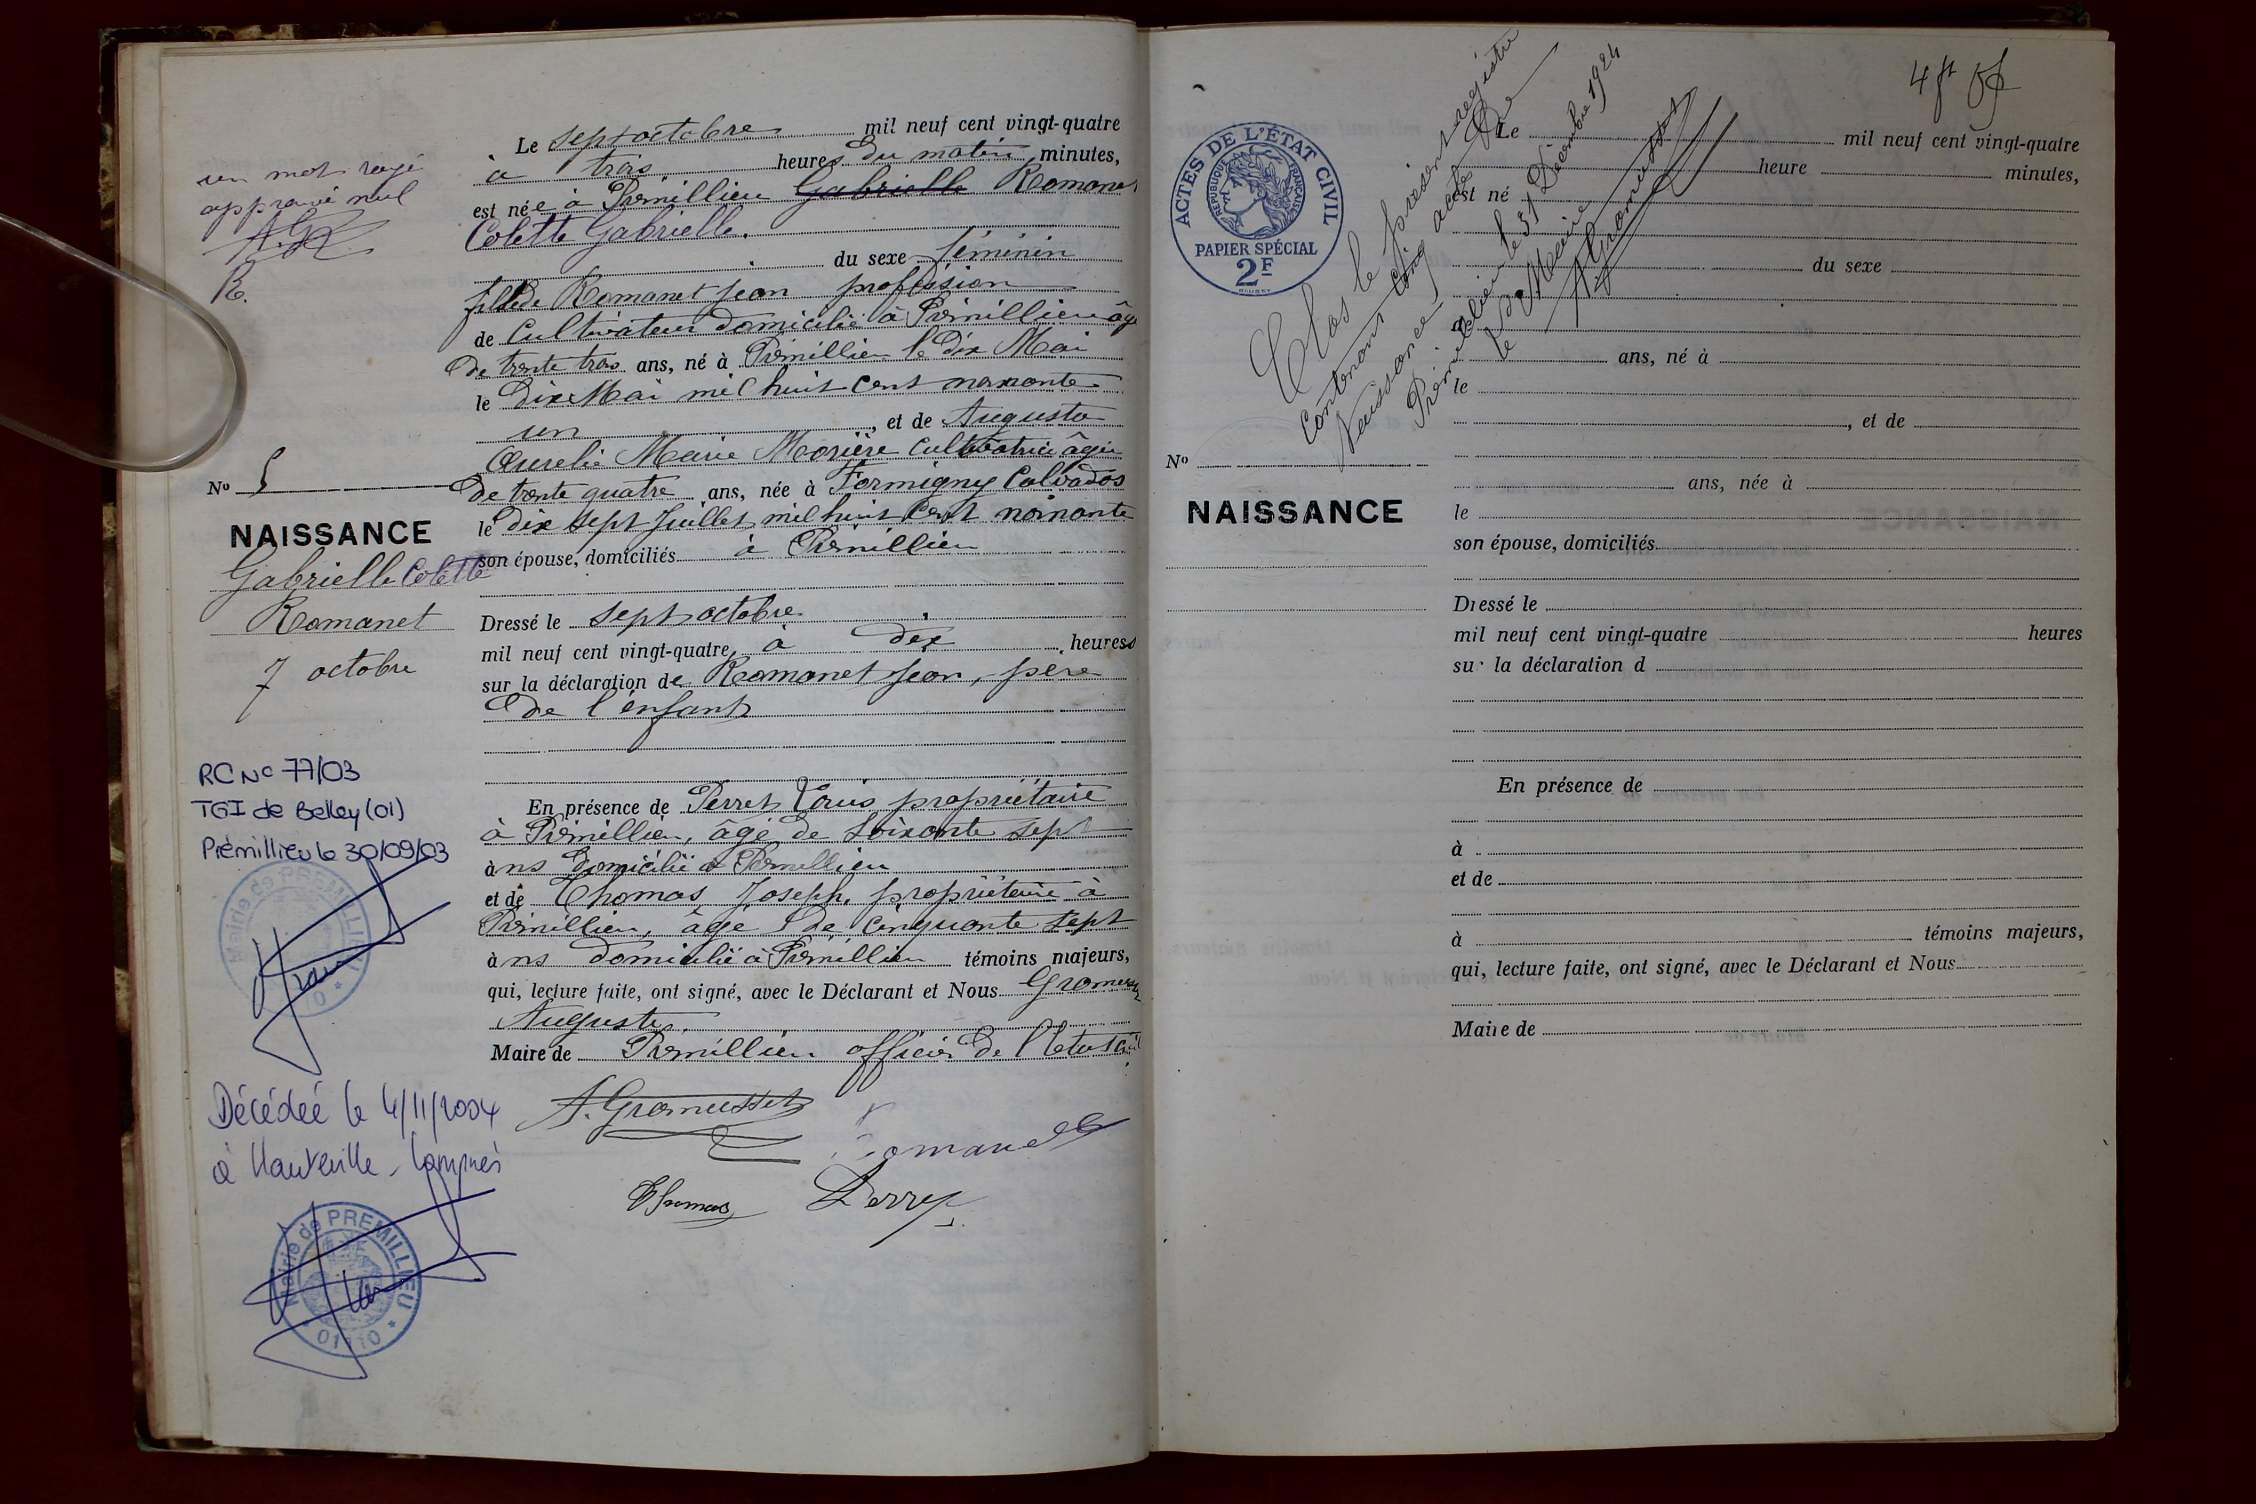 un mot rayé
approuvé nul
A.G.
R.
N° 5
NAISSANCE
Gabrielle Colette
Romanet
7 octobre
RC N° 77/03
TGI de Belley (01)
Prémillieu le 30/09/03
Mairie de PREMILLIEU
Décédée le 4/11/2004
à Hauteville-Lompnes
Mairie de PREMILLIEU
* 01110 *
Le sept octobre mil neuf cent vingt-quatre
à trois heures du matin minutes,
est née à Prémillieu Gabrielle Romanet
Colette Gabrielle.
du sexe féminin
fille de Romanet Jean profession
de Cultivateur domicilié à Prémillieu âgé
de trente trois ans, né à Prémillieu le Dix Mai
le Dix Mai mil huit cent nonante
un, et de Augusta
Aurelie Marie Morière Cultivatrice âgée
de trente quatre ans, née à Formigny Calvados
le dix sept Juillet mil huit cent nonante
son épouse, domiciliés à Prémillieu
Dressé le sept octobre
mil neuf cent vingt-quatre, à dix heures
sur la déclaration de Romanet Jean, père
De l'enfant
En présence de Perret Louis propriétaire
à Prémillieu, âgé de soixante sept
ans domicilié à Prémillieu
et de Thomas Joseph, propriétaire à
Prémillieu, âgé de cinquante sept
ans domicilié à Prémillieu témoins majeurs,
qui, lecture faite, ont signé, avec le Déclarant et Nous Gromusset
Auguste
Maire de Prémillieu officier De l'Etat Civil
A. Gromusset
Romanet
Thomas Perret
4 ft
ACTES DE L'ÉTAT CIVIL
RÉPUBLIQUE FRANÇAISE
PAPIER SPÉCIAL
2F
Clos le présent registre
Contenant cinq actes De
Naissance
Prémillieu le 31 Décembre 1924
le Maire
A Gromusset
N°
NAISSANCE
Le mil neuf cent vingt-quatre
heure minutes,
est né
du sexe
d
ans, né à
le
, et de
ans, née à
le
son épouse, domiciliés
Dressé le
mil neuf cent vingt-quatre heures
sur la déclaration d
En présence de
à
et de
à témoins majeurs,
qui, lecture faite, ont signé, avec le Déclarant et Nous
Maire de